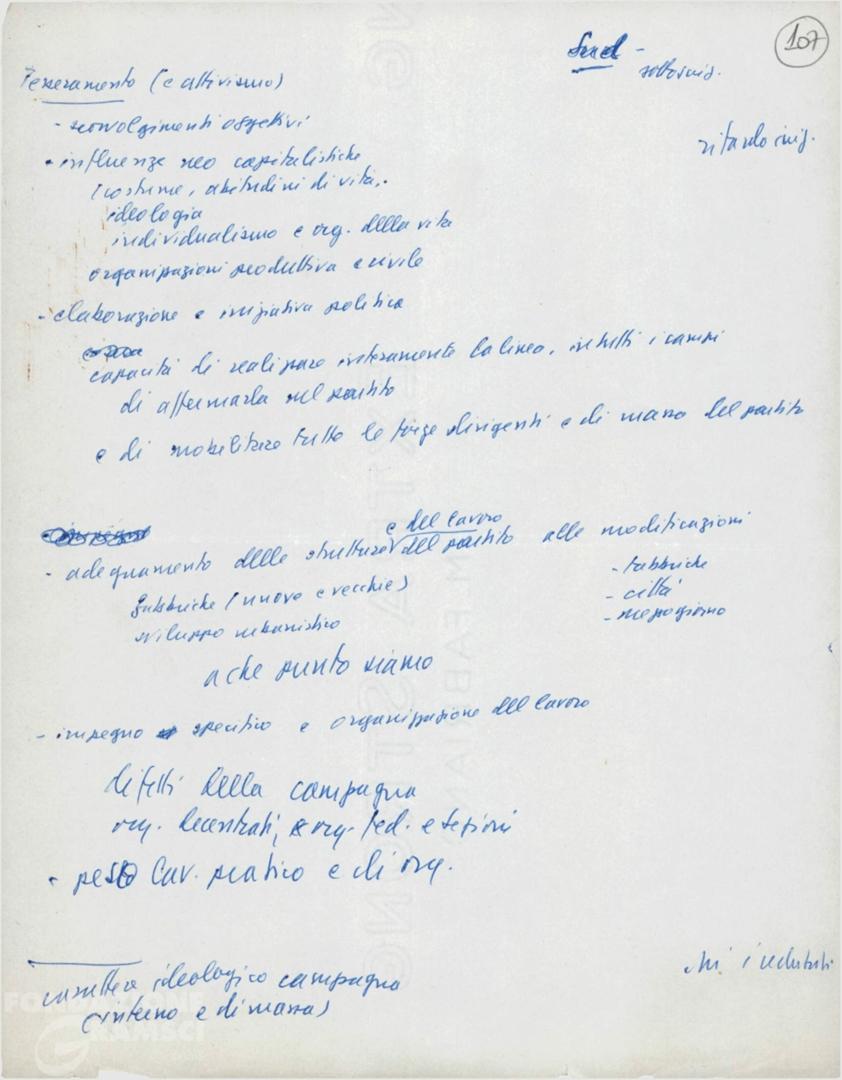 107
Sud -
sottosvig.
Tesseramento (e attivismo)
- sconvolgimenti oggettivi
ritardo
- influenze neo capitalistiche
(costume, abitudini di vita,
ideologia
individualismo e org. della vita
organizzazioni produttiva e civile
- elaborazione e iniziativa politica
capacità di realizzare interamente la linea, in tutti i campi
di affermarla nel partito
e di mobilitare tutte le forze dirigenti e di massa del partito
e del lavoro
- adeguamento delle strutture del partito alle modificazioni
- fabbriche
fabbriche (nuove e vecchie)
- città
sviluppo urbanistico
- mezzogiorno
a che punto siamo
- impegno specifico e organizzazione del lavoro
difetti della campagna
org. decentrati, org. fed. e sezioni
- peso lav. pratico e di org.
chi i reclutati
carattere ideologico campagna
(interno e di massa)
FONDAZIONE
GRAMSCI